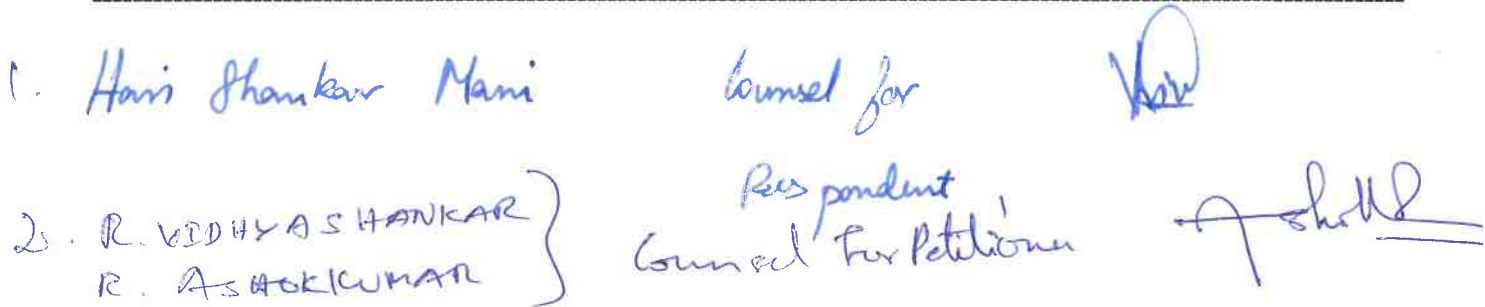 1. Hari Shankar Mani Counsel for
Respondent
2. R. VIDHYASHANKAR
R. ASHOKKUMAR
Counsel For Petitioner